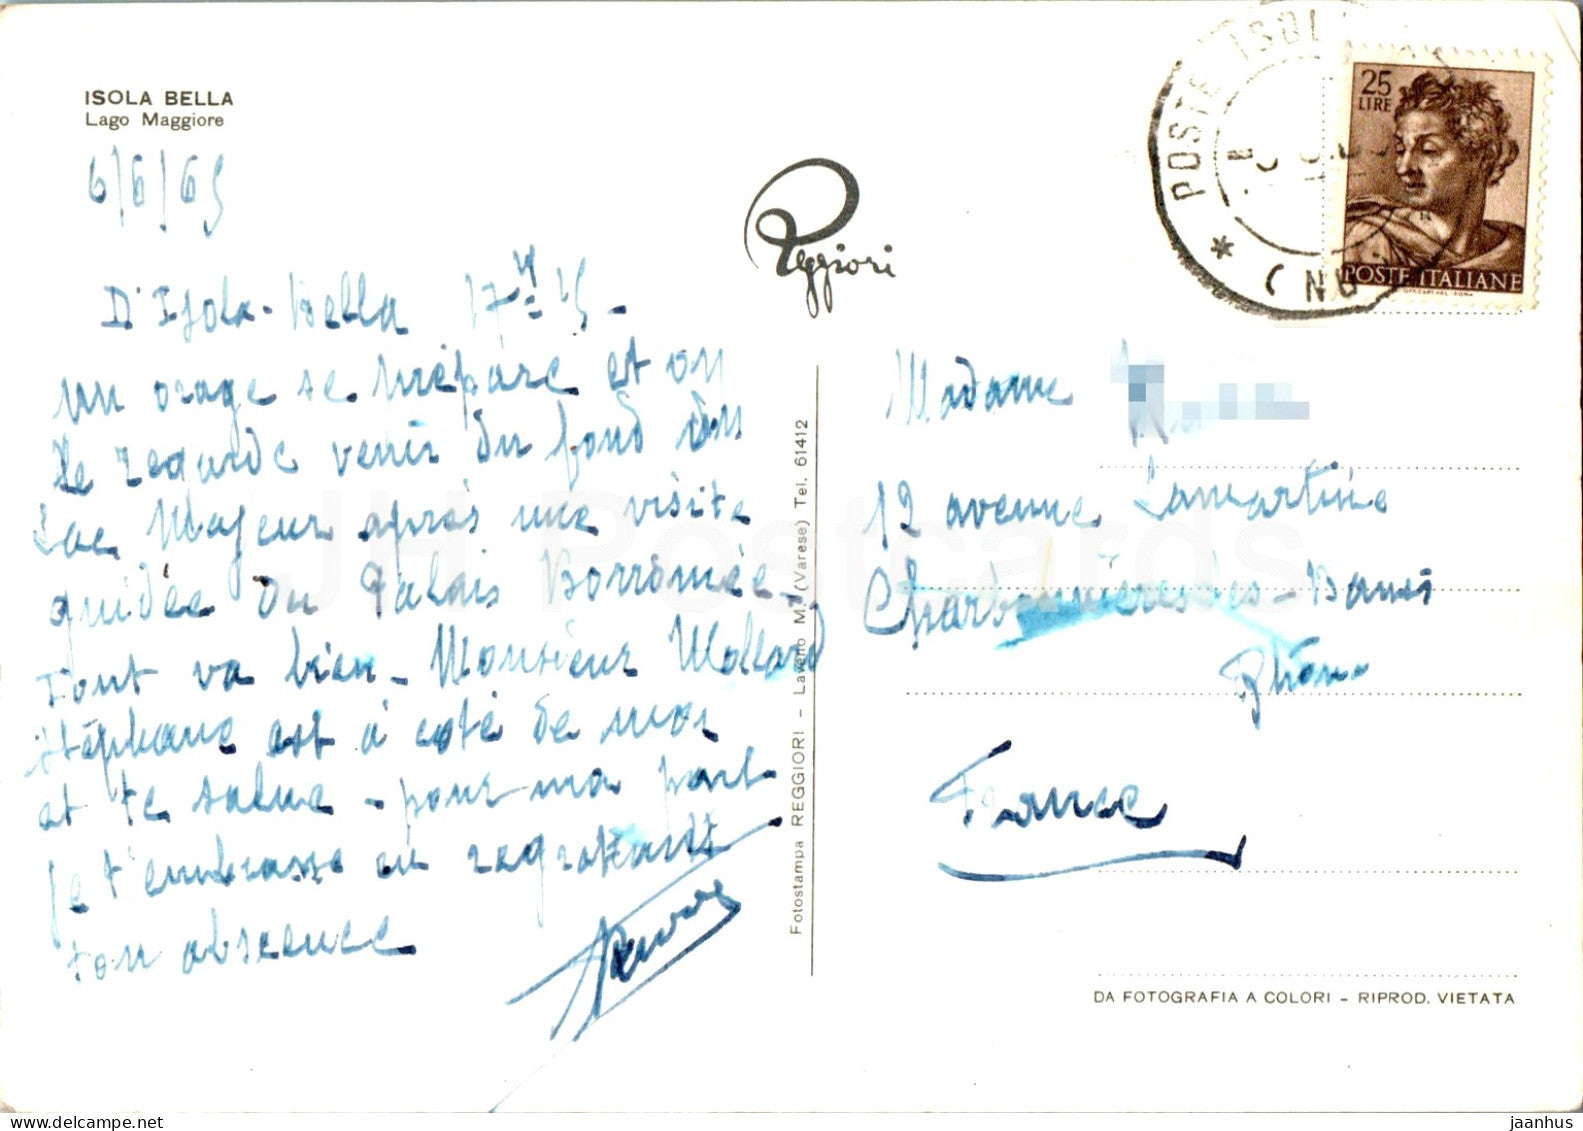 ISOLA BELLA
Lago Maggiore
6/6/65
D'Isola-Bella 17h 15 -
un orage se prépare et on
le regarde venir du fond du
Lac Majeur après une visite
guidée du Palais Borromée -
Tout va bien - Monsieur Mollard
Stéphane est à côté de moi
et te salue - pour ma part
je t'embrasse en regrettant
ton absence
Reggiori
Fotostampa REGGIORI - Laveno M. (Varese) Tel. 61412
POSTE ISOL
25
LIRE
POSTE ITALIANE
Madame
12 avenue Lamartine
Charbonnières-les-Bains
Rhône
France
DA FOTOGRAFIA A COLORI - RIPROD. VIETATA
JH Postcards
jaanhus / delcampe.net